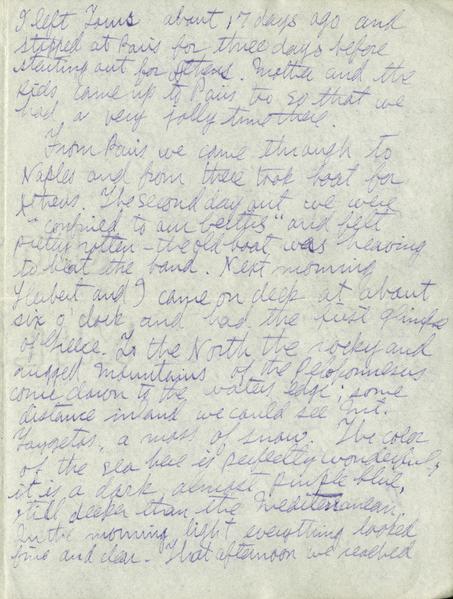 I left Tours about 17 days ago and
stopped at Paris for three days before
starting out for Athens. Mother and the
kids came up to Paris too so that we
had a very jolly time there.
From Paris we came through to
Naples and from there took boat for
Athens. The second day out we were
"confined to our berths" and felt
pretty rotten - the old boat was heaving
to beat the band. Next morning
Herbert and I came on deck at about
six o'clock and had the first glimpse
of Greece. To the North the rocky and
rugged mountains of the Peloponnesus
come down to the waters edge; some
distance inland we could see Mt.
Taygetos, a mass of snow. The color
of the sea here is perfectly wonderful,
it is a dark almost purple blue,
still deeper than the Mediterranean.
In the morning light everything looked
fine and clear. That afternoon we reached